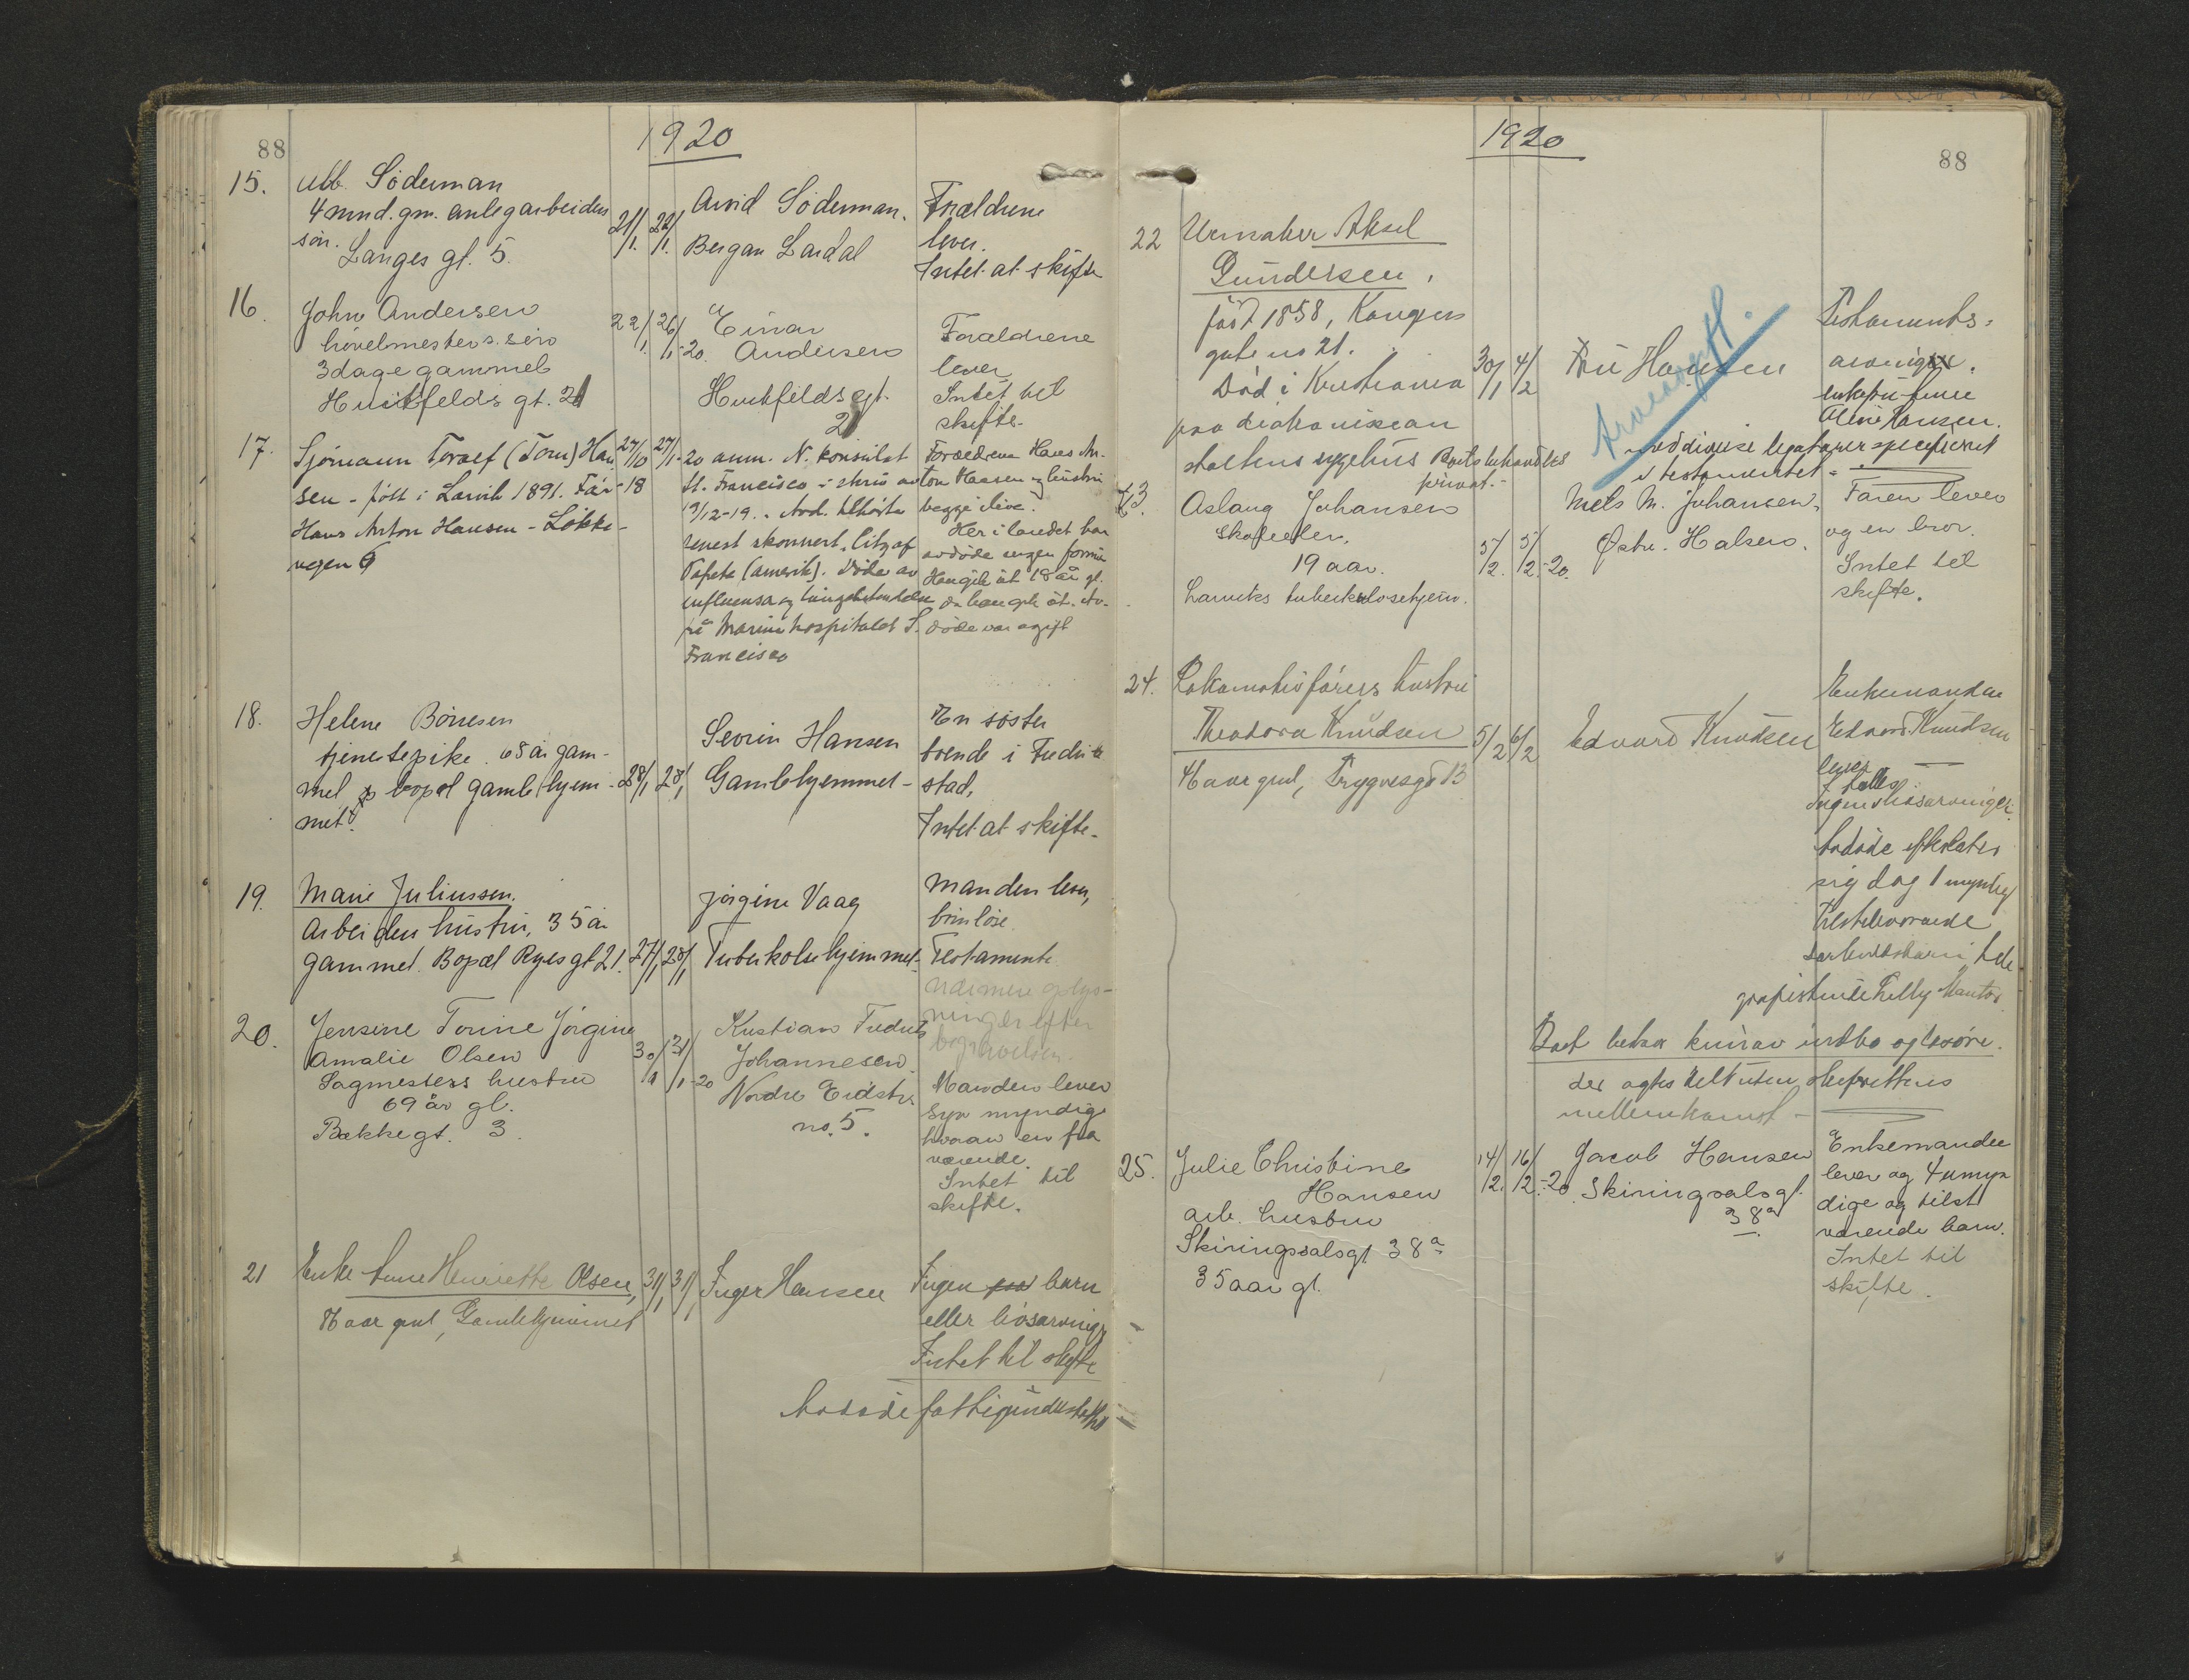 88
1920
15.
Söderman
4 mnd. gm. anlegarbeiders
sön.
Langes gt. 5.
21/1.
22/1.
Arvid Söderman.
Bergan Lardal
Forældrene
lever.
Intet at skifte
16.
John Andersen
hövelmesters sön
3 dage gammel
Huitfelds gt. 21
22/1.
26/1-20.
Einar
Andersen
Huitfelds gt.
21
Forældrene
lever
Intet til
skifte.
17.
Sjömann Toralf (Tom) Han-
sen - född i Larvik 1891. Far
Hans Anton Hansen - Løkke-
vegen 6
27/10
-18
27/1-20 anm. N. konsulat
St. Francisco i skriv av
19/12-19. Avd. tilhörte
senest skonnert
(Amerik). Döde av
influensa og lungebetendelse
på Marinehospitalet S.
Francisco
Forældrene Hans An-
ton Hansen og hustru
begge i live.
Her i landet har
avdöde ingen formue
Han gik ut 18 år gl.
da han gik ut. Av-
döde var ugift
18.
Helene Börresen
tjenestepike. 68 år gam-
mel bopæl Gamlehjem-
met.
28/1
28/1
Sevrin Hansen
Gamlehjemmet-
En söster
boende i Fredrik-
stad.
Intet at skifte-
19.
Marie Juliussen.
Arbeiders hustru, 35 år
gammel. Bopæl Ryes gt 21.
27/1
28/1
Jörgine Vaag
Tuberkolsehjemmet-
Manden lever,
barnlöse
Testamente
nærmere oplys-
ninger efter
begravelsen.
20.
Jensine Torine Jörgine
Amalie Olsen
Sagmesters hustru
69 år gl.
Bækkegt. 3.
30/1
31/1-20
Kristian Fredrik
Johannesen.
Nordre
no. 5.
Manden lever
Syv myndige
hvorav en fra
værende.
Intet til
skifte.
21
Enke Anne Henriette Olsen,
aar gml, Gamlehjemmet
31/1
31/1
Inger Hansen
Ingen barn
eller livsarvinger
Intet til skifte
Avdöde fattigunderstöttet
1920
88
22
Urmaker Aksel
Gundersen,
född 1858, Kongens
gate no 21.
Död i Kristiania
paa diakonissean
staltens sygehus
30/1
4/2
Fru Hansen
Boets behandles
privat.-
Testaments-
arvinger.
Enkefru Anne
Oline Hansen.
med diverse legatarer specificert
i testamentet
23.
Aslaug Johansen
Skoleelev.
19 aar.
Larviks tuberkulosehjem.
5/2.
5/2.-20.
Niels M. Johansen,
Østre. Halsen.
Faren lever
og en bror.
Intet til
skifte.
24.
Lokomotivförers hustru
Theodora Knudsen
aar gml, Trygvesgd 13
5/2
6/2
Edvard Knudsen
Enkemanden
Edvard Knudsen
lever
Ingen livsarvinger.
Avdöde efterlater
sig dog 1 myndig
tilstedeværende
særkuldsbarn, tele-
grafistinde
Boet bestaar kun av indbo og lösöre.
der agtes delt uten skifterettens
mellemkomst-
25.
Julie Christine
Hansen
arb. hustru
Skiringssalsgt 38a
35 aar gl.
14/2.
16/2.-20.
Jacob Hansen
Skiringssalsgt.
38a
Enkemanden
lever og 4 umyn
dige og tilste
værende barn.
Intet til
skifte.